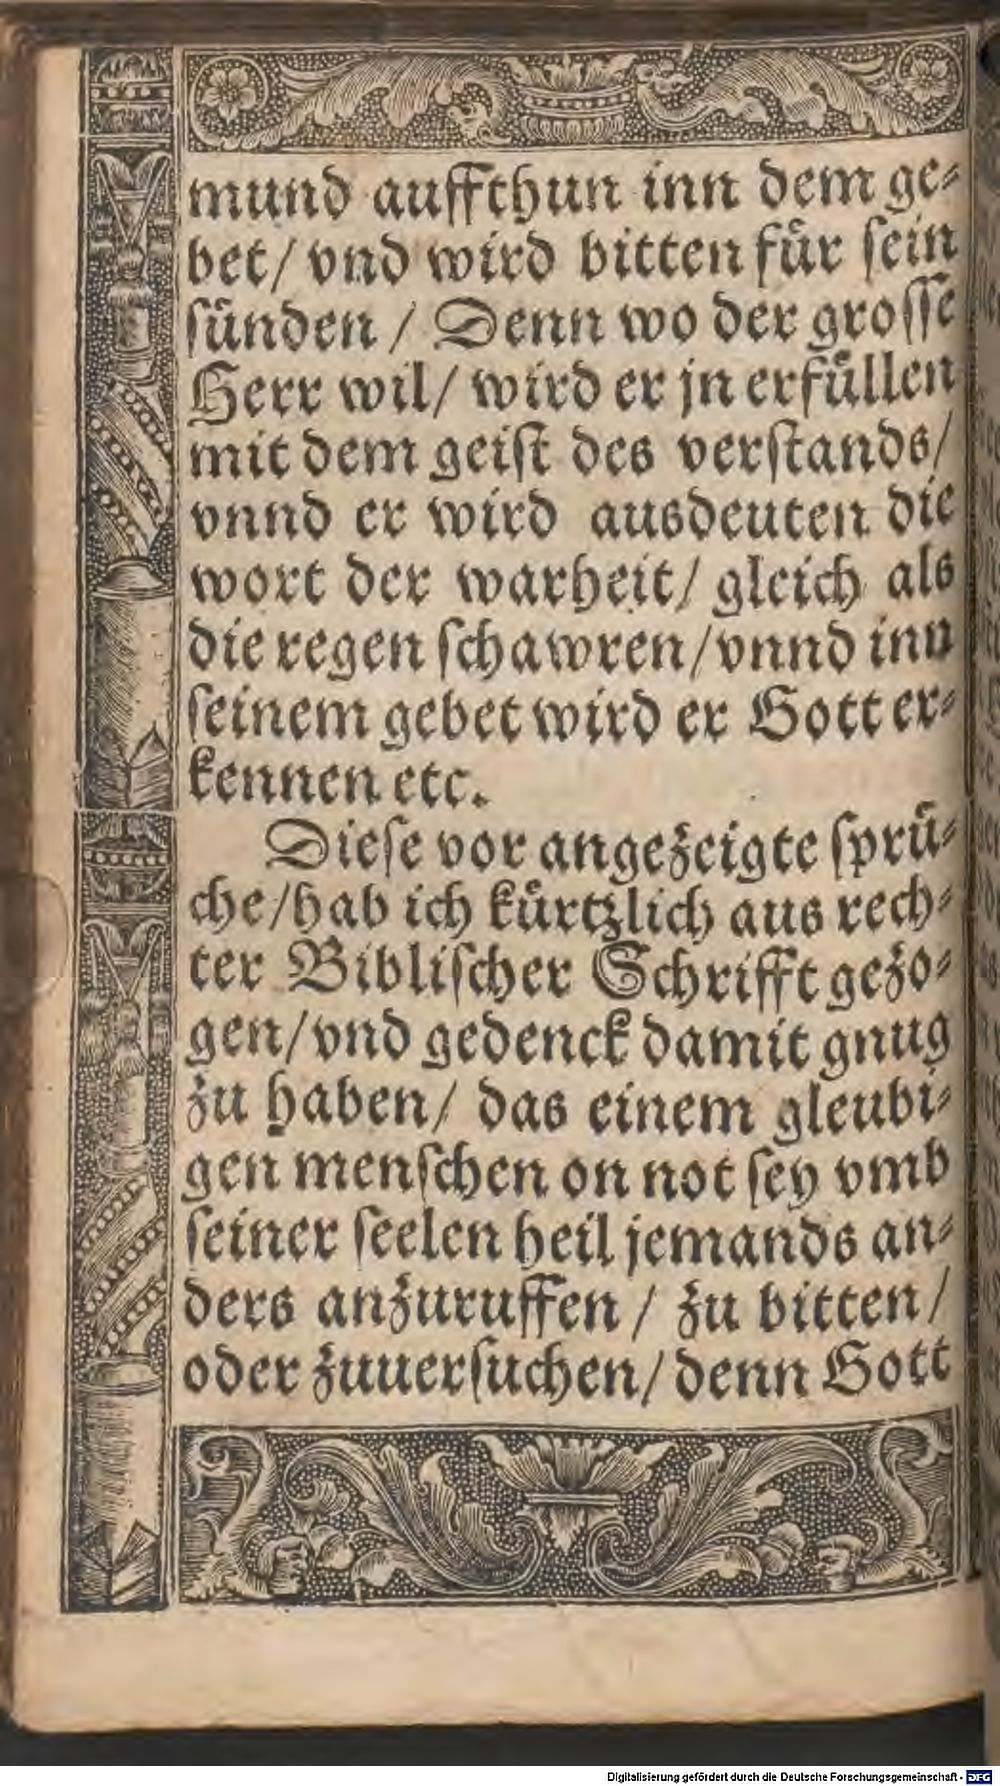 mund auffthun inn dem ge⸗
bet/ vnd wird bitten fuͤr ſein
ſuͤnden / Denn wo der groſſe
Herr wil/ wird er jn erfuͤllen
mit dem geiſt des verſtands/
vnnd er wird ausdeuten die
wort der warheit/ gleich als
die regen ſchawren/vnnd inn
ſeinem gebet wird er Gott er⸗
kennen etc.
Dieſe vor angezeigte ſpruͤ⸗
che/hab ich kuͤrtzlich aus rech⸗
ter Bibliſcher Schrifft gezo⸗
gen/vnd gedenck damit gnug
zu haben/ das einem gleubi⸗
gen menſchen on not ſey vmb
ſeiner ſeelen heil jemands an⸗
ders anzuruffen / zu bitten/
oder zuuerſuchen/ denn Gott
Digitalisierung gefördert durch die Deutsche Forschungsgemeinschaft - DFG